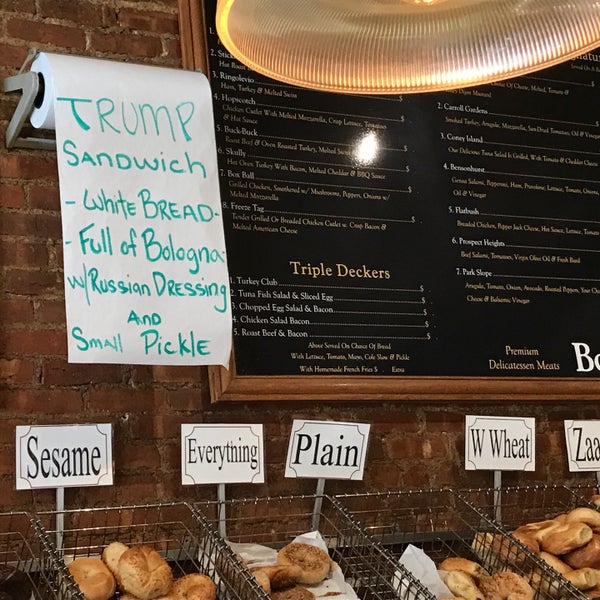 TRUMP
SANDWICH
- WHITE BREAD -
- Full of Bologna
w/ Russian Dressing
AND
Small Pickle
3. Ringolevio
Ham, Turkey & Melted Swiss
4. Hopscotch
Chicken Cutlet With Melted Mozzarella, Crisp Lettuce, Tomatoes
& Hot Sauce
5. Buck-Buck
Roast Beef & Oven Roasted Turkey, Melted
6. Skully
Hot Oven Turkey With Bacon, Melted Cheddar & BBQ Sauce
7. Box Ball
Grilled Chicken, Smothered w/ Mushrooms, Peppers, Onions w/
Melted Mozzarella
8. Freeze Tag
Tender Grilled Or Breaded Chicken Cutlet w. Crisp Bacon &
Melted American Cheese
Triple Deckers
1. Turkey Club
2. Tuna Fish Salad & Sliced Egg
3. Chopped Egg Salad & Bacon
4. Chicken Salad Bacon
5. Roast Beef & Bacon
Above Served On Choice Of Bread
With Lettuce, Tomato, Mayo, Cole Slaw & Pickle
With Homemade French Fries $ . Extra
2. Carroll Gardens
Smoked Turkey, Arugula, Mozzarella, Sun-Dried Tomatoes, Oil &
3. Coney Island
Our Delicious Tuna Salad & Grilled, With Tomato & Cheddar Cheese
4. Bensonhurst
Genoa Salami, Pepperoni, Ham, Provolone, Lettuce, Tomato, Onions,
Oil & Vinegar
5. Flatbush
Breaded Chicken, Pepper Jack Cheese, Hot Sauce, Lettuce, Tomato
6. Prospect Heights
Beef Salami, Tomatoes, Virgin Olive Oil & Fresh Basil
7. Park Slope
Arugula, Tomato, Onion, Avocado, Roasted Peppers, Your
Cheese & Balsamic Vinegar
Premium
Delicatessen Meats
Bo
Sesame
Everything
Plain
W Wheat
Zaa